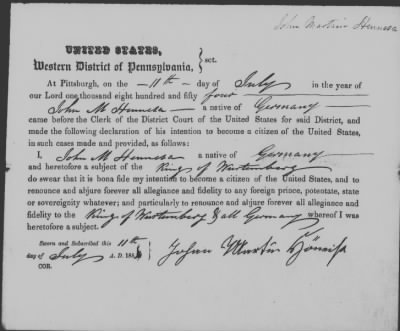 John Martin Hennesa
UNITED STATES,
Western District of Pennsylvania, } sct.
At Pittsburgh, on the 11th day of July in the year of
our Lord one thousand eight hundred and fifty four
John M Hennesa a native of Germany
came before the Clerk of the District Court of the United States for said District, and
made the following declaration of his intention to become a citizen of the United States,
in such cases made and provided, as follows:
I, John M Hennesa a native of Germany
and heretofore a subject of the King of Wurtemberg
do swear that it is bona fide my intention to become a citizen of the United States, and to
renounce and abjure forever all allegiance and fidelity to any foreign prince, potentate, state
or sovereignty whatever; and particularly to renounce and abjure forever all allegiance and
fidelity to the King of Wurtemberg & all Germany whereof I was
heretofore a subject.
Sworn and Subscribed this 11th
day of July A. D. 185
Johan Martin
COR.